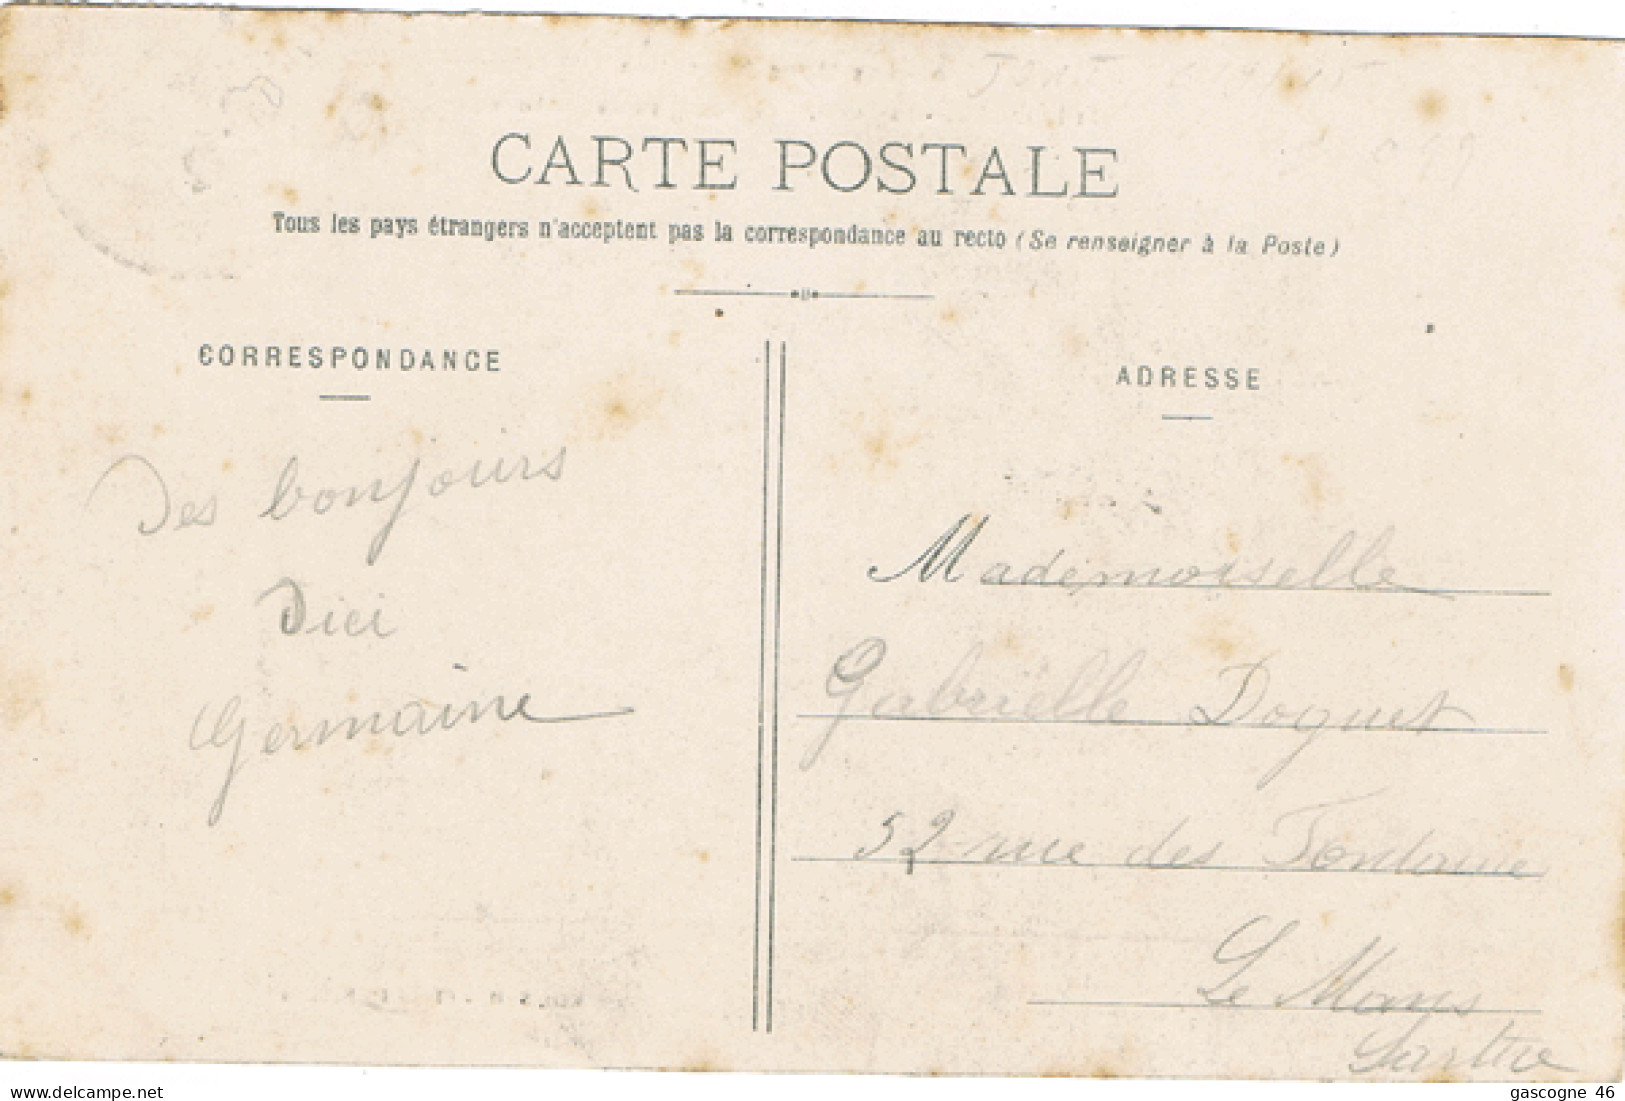 CARTE POSTALE
Tous les pays étrangers n'acceptent pas la correspondance au recto (Se renseigner à la Poste)
CORRESPONDANCE
Des bonjours
Dici
Germaine
ADRESSE
Mademoiselle
Gabrielle Doguet
52 rue des Fontaine
Le Mans
Sarthe
delcampe.net
gascogne 46